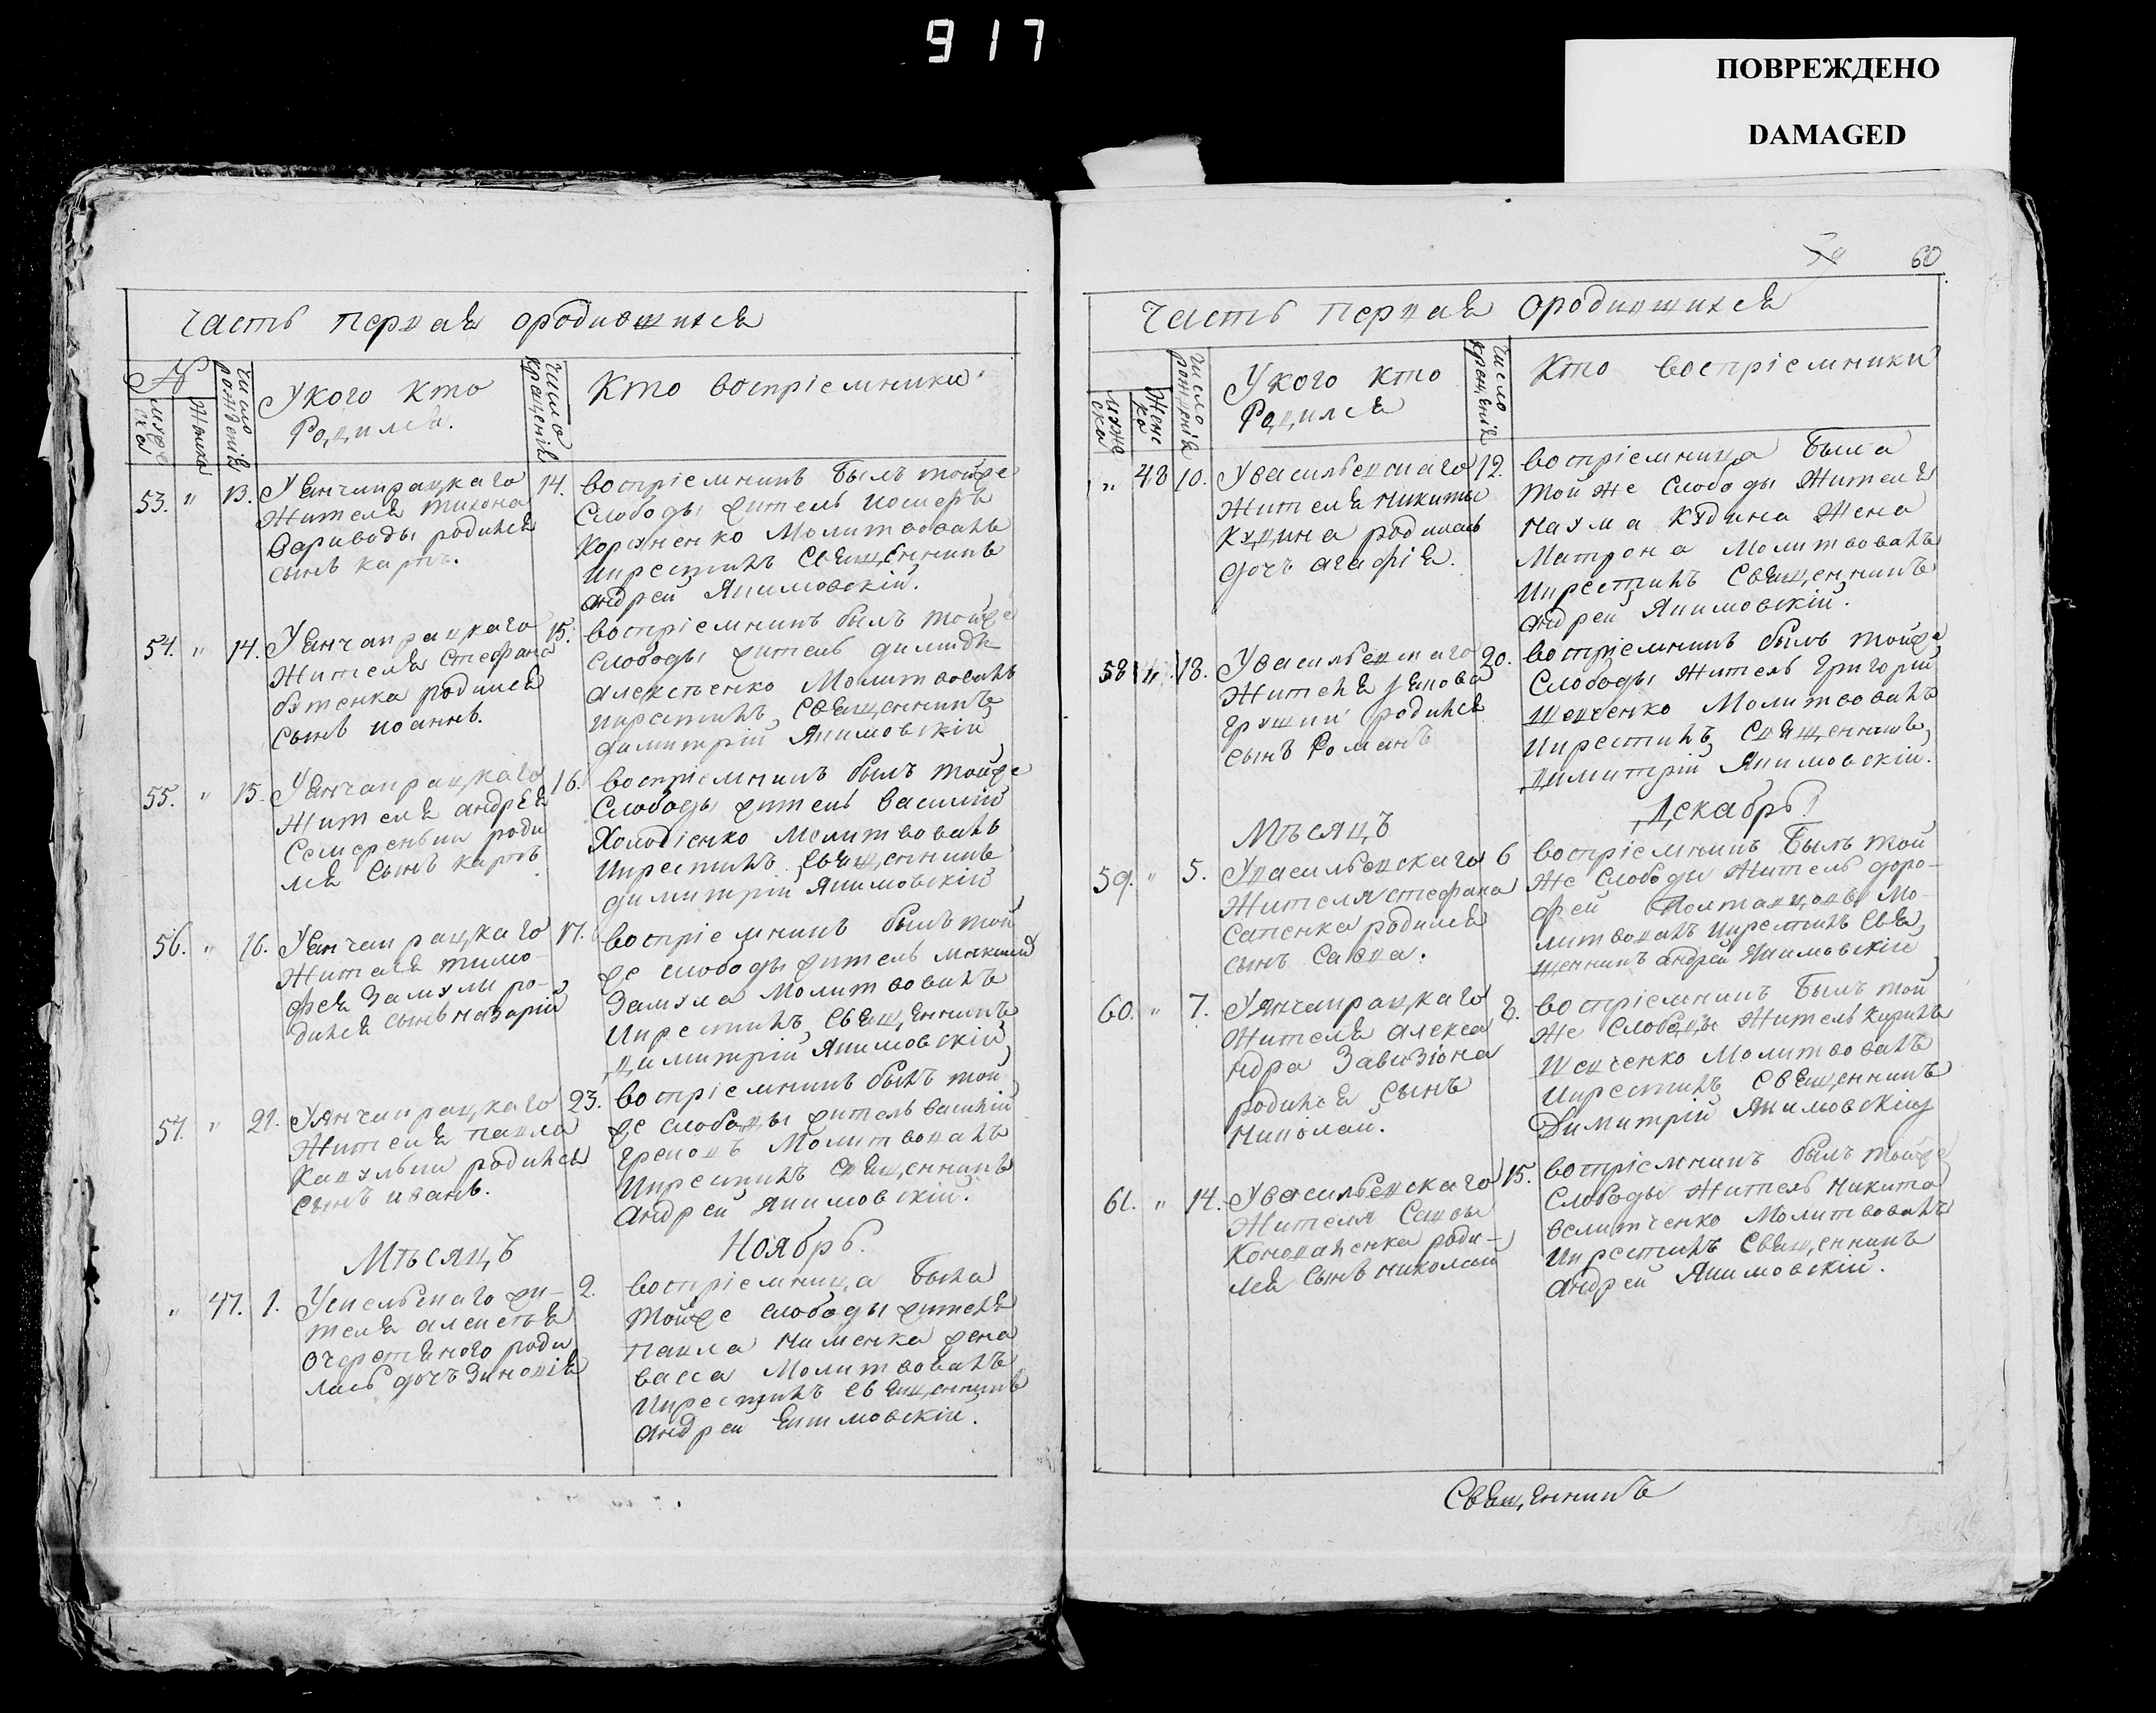 917
ПОВРЕЖДЕНО
DAMAGED
Часть первая ородившихся
№
мужеска
Женска
Число рождения
Укого кто
Родился.
Число крещения
Кто воспріемники
53. " 13. Уянчапрацкаго
Жителя тихона
Вариводы родился
сынъ карпъ.
14. воспріемникъ былъ тойже
Слободы житель
Молитвовалъ
икрестилъ Священникъ
андрей Якимовскій.
54. " 14. Уянчапрацкаго
Жителя Стефана
родился
Сынъ иоаннъ.
15. воспріемникъ былъ тойже
слободы житель
алексѣенко Молитвовалъ
икрестилъ Священникъ
димитрій Якимовскій
55. " 15. Уянчапрацкаго
Жителя андрея
роди
лся Сынъ карпъ
16. воспріемникъ былъ тойже
Слободы житель василій
Холодіенко Молитвовалъ
икрестилъ Священникъ
димитрій Якимовскій
56. " 16. Уянчапрацкаго
Жителя тимо-
фея Замулы ро-
дился сынъ назарій
17. воспріемникъ былъ той
же слободы житель
Замула Молитвовалъ
икрестилъ Священникъ
димитрій Якимовскій
57. " 21. Уянчапрацкаго
Жителя павла
родился
сынъ иванъ.
23. воспріемникъ былъ той
же слободы житель василій
Молитвовалъ
икрестилъ Священникъ
андрей Якимовскій.
Мѣсяцъ Ноябрь.
" 47. 1. жи-
теля алексѣя
очеретяного роди
лась дочъ Зиновія
2. воспріемница была
тойже слободы жителя
павла жена
васса Молитвовалъ
икрестилъ священникъ
андрей Якимовскій.
60
Часть первая ородившихся
мужеска
Женска
Число рожденія
Укого кто
Родился
Число крещенія
Кто воспріемники
" 48 10. Увасильевскаго
жителя никиты
Кудина родилась
дочъ агафія.
12. воспріемница была
той же слободы жителя
наума кудина жена
Матрона Молитвовалъ
икрестилъ Священникъ
андрей Якимовскій.
58 " 18. Увасильевскаго
Жителя якова
Грушки родился
сынъ Романъ
20. воспріемникъ былъ тойже
Слободы житель Григорій
Шевченко Молитвовалъ
икрестилъ Священникъ
димитрій Якимовскій.
Мѣсяцъ Декабрь!
59. " 5. Увасильевскаго
жителя стефана
Сапенка родился
сынъ Савва.
6 воспріемникъ былъ той
же слободы житель доро-
фей Мо-
литвовалъ икрестилъ Свя
щенникъ андрей Якимовскій
60. " 7. Уянчапрацкаго
жителя алекса
ндра Завизіона
родился сынъ
николай.
8. воспріемникъ былъ той
же Слободы житель кирилъ
Шевченко Молитвовалъ
икрестилъ Священникъ
Димитрій Якимовскій
61. " 14. Увасильевскаго
жителя Саввы
Коноваленка роди-
лся сынъ николай
15. воспріемникъ былъ тойже
Слободы житель никита
велитченко Молитвовалъ
икрестилъ Священникъ
андрей Якимовскій.
Священникъ